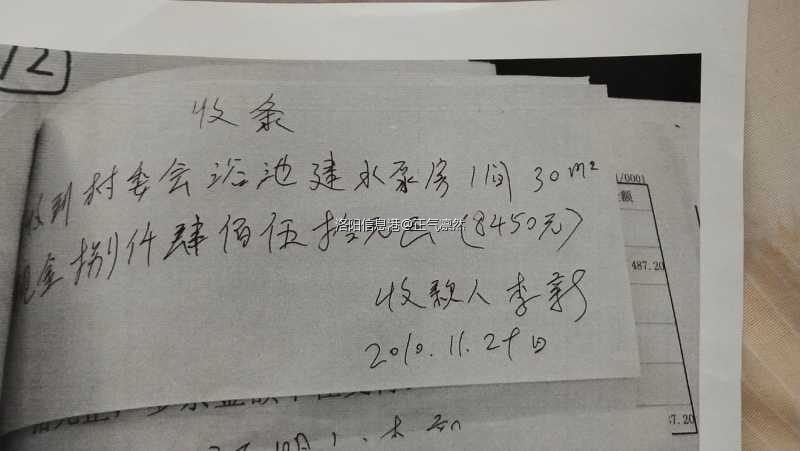 12
收条
收到村委会浴池建水泵房1间30m²
现金捌仟肆佰伍拾元正(8450元)
洛阳信息港@正气凛然
收款人李新
2010.11.29日
(000)
额
487.20
37.20